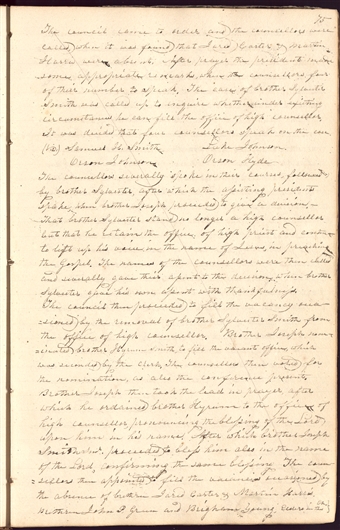 75
The council came to order and the counsellors were
called, when it was found that Jared Carter & Martin
Harris were absent. After prayer the president made
some appropriate remarks, when the councillors four
of their number to speak. The case of brother Sylvester
Smith was called up to inquire whether under existing
circumstances he can fill the office of high counsellor.
It was decided that four counsellors speak on the case
(viz) Samuel H. Smith Luke Johnson
Orson Johnson Orson Hyde
The councellors severally spoke in their course, followed
by brother Sylvester, after which the assisting presidents
spoke, when brother Joseph proceeded to give a decision,
That brother Sylvester stand no longer a high counsellor
but that he retain the office of high priest and continue
to lift up his voice in the name of Jesus, in preaching
the Gospel. The names of the counsellors were then called
and severally gave their assent to this decision, when brother
Sylvester gave his own assent with thanksgivings.
The council then proceeded to fill the vacancy occa-
sioned by the removal of brother Sylvester Smith from
the office of high counsellor. Brother Joseph nom-
inated brother Hyrum Smith to fill the vacant office, which
was seconded by the clerk. The counsellors then voted for
the nomination, as also the conference present.
Brother Joseph then took the lead in prayer after
which he ordained brother Hyrum to the office of
high counsellor pronouncing the blessing of the Lord
upon him in his name; After which brother Joseph
Smith sen. proceeded to bless him also in the name
of the Lord, confirming the same blessing. The coun-
sellors then appointed to fill the vacancies occasioned by
the absence of brother Jared Carter & Martin Harris
brethren John P. Green and Brigham Young.